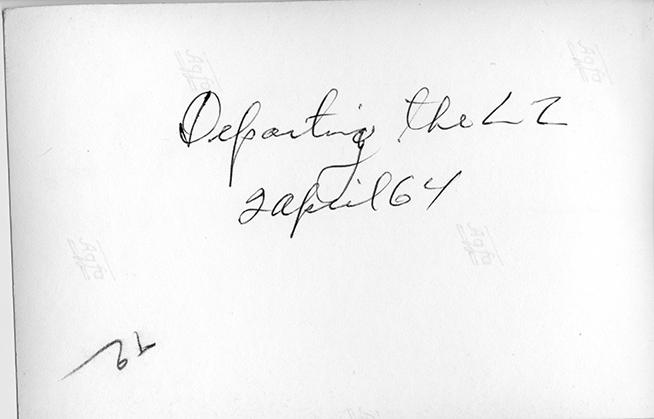 Departing the LZ
2 april 64